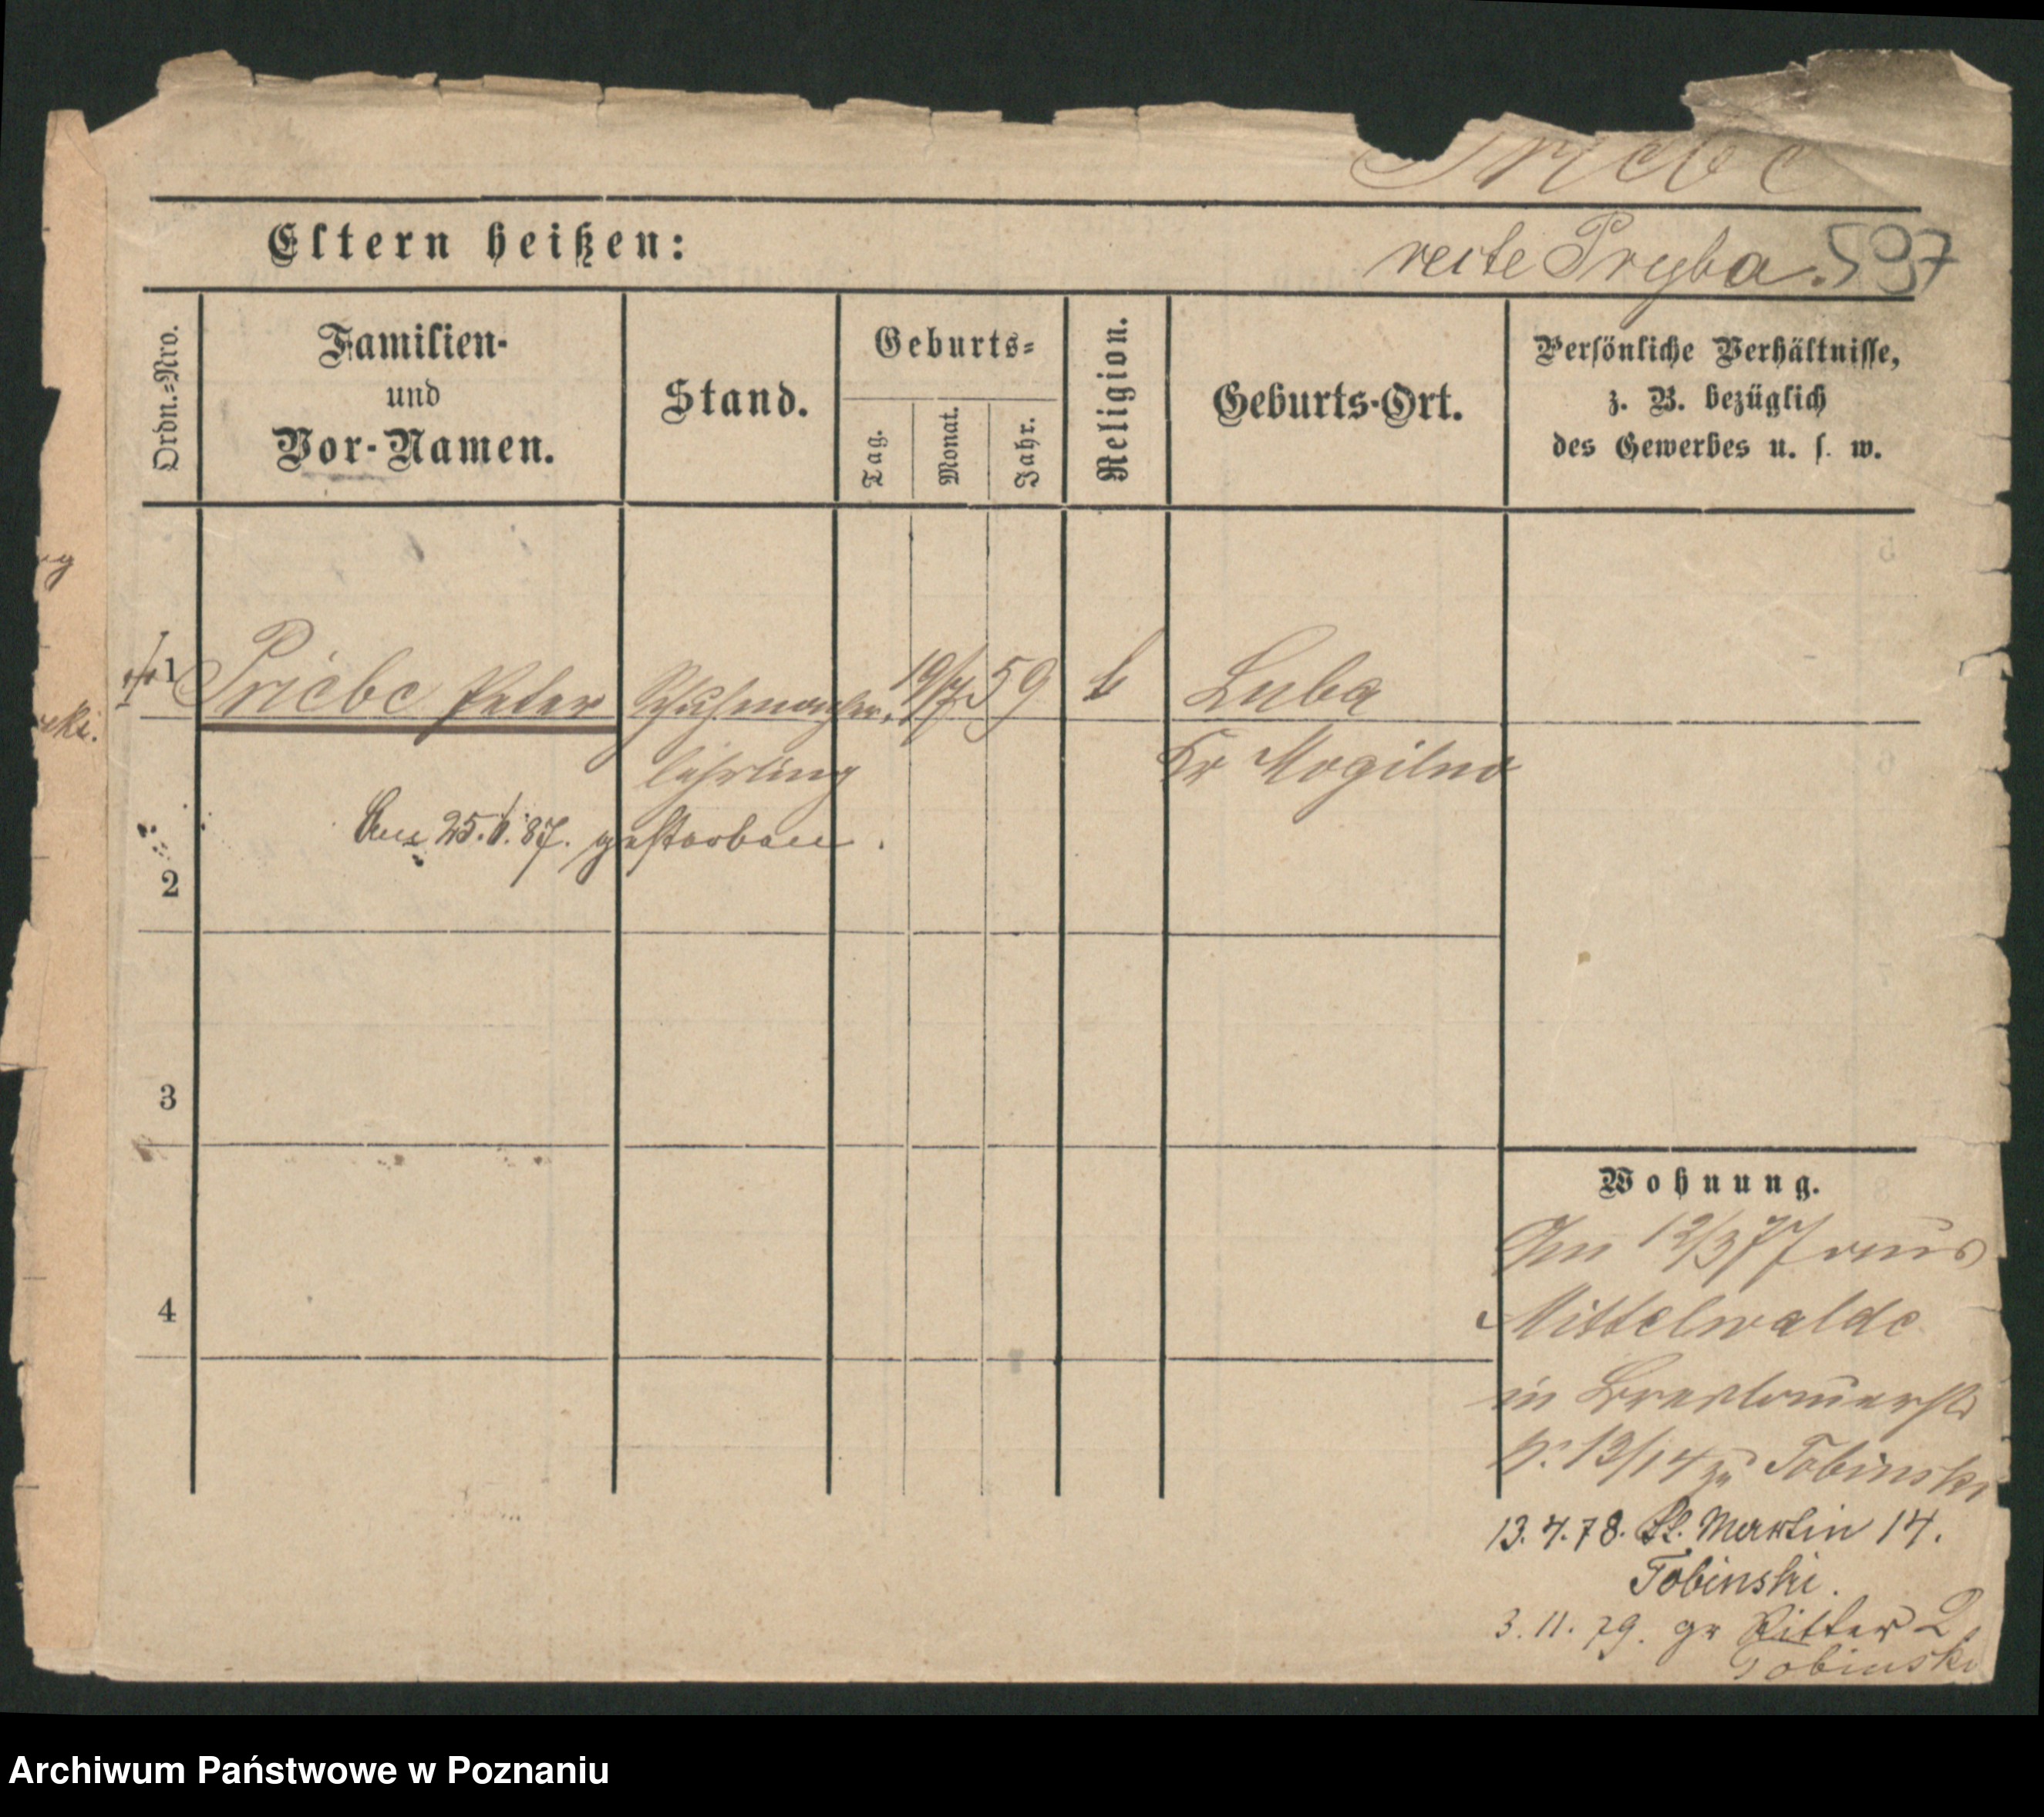 Priebe
recte Pryba. 597
Eltern heißen:
Ordn.-Nro.
Familien-
und
Vor-Namen.
Stand.
Geburts-
Tag.
Monat.
Jahr.
Religion.
Geburts-Ort.
Persönliche Verhältnisse,
z. B. bezüglich
des Gewerbes u. s. w.
1 Priebe Peter Schuhmacher 19/7 59 k Luba
lehrling Kr Mogilno
Am 25. 87. gestorben.
2
3
4
Wohnung.
Am 12/3 77 aus
Mittelwalde
in Breslauerstr
N. 13/14 zu Tobinski
13.4.78. St. Martin 14.
Tobinski.
3.11.79. gr Ritter 2
Tobinski
Archiwum Państwowe w Poznaniu